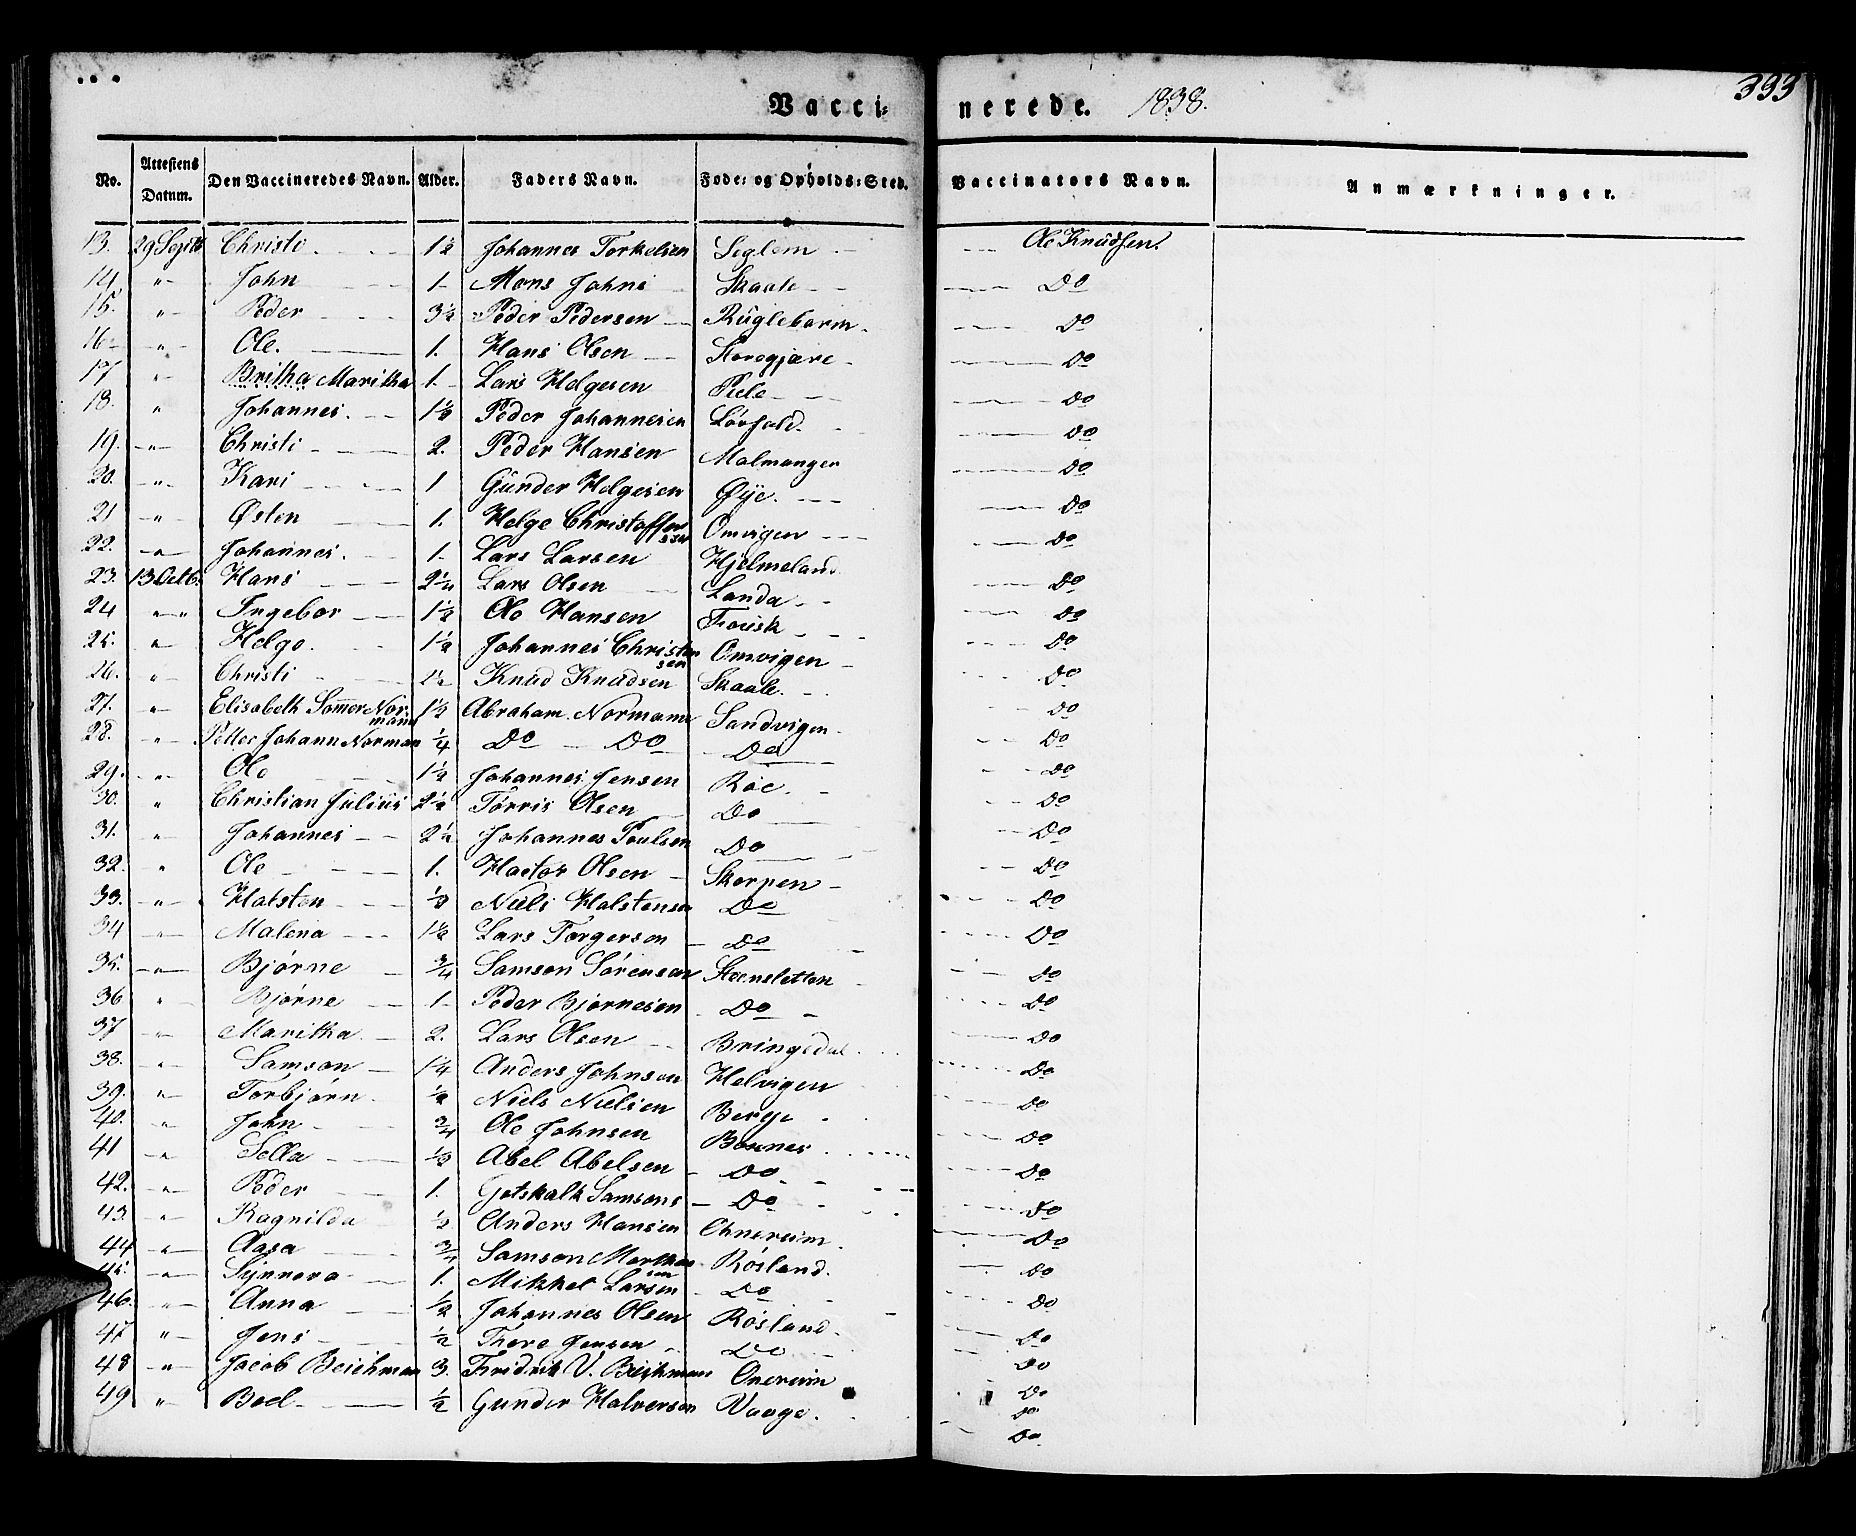 Vacci= nerede. 1838. 393
No. Attestens Datum. Den Vaccineredes Navn. Alder. Faders Navn. Føde= og Opholds=Sted. Vaccinators Navn. Anmærkninger.
13. 29 Septb Christi 1½ Johannes Torkelsen Seglem Ole Knudsen.
14. " John 1 Mons Johns Skaale Do
15. " Peder 3½ Peder Pedersen Do
16. " Ole. 1. Hans Olsen Do
17 " Britha Maritha 1. Lars Helgesen Do
18. " Johannes. 1½ Peder Johannesen Do
19. " Christi 2. Peder Hansen Malmanger Do
20. " Kari 1 Gunder Helgesen Øye. Do
21 " Østen 1. Helge Christoffersen Omvigen Do
22. " Johannes. 1. Lars Larsen Hjelmeland Do
23. 13 Octb. Hans Lars Olsen Landa Do
24 " Ingebor 1½ Ole Hansen Do
25. " Helge. 1½ Johannes Christensen Omvigen Do
26. " Christi Knud Knudsen Skaale. Do
27. " Elisabeth Sommer Normann 1½ Abraham Normann Sandvigen Do
28. " Petter Johann Norman ¼ Do Do Do Do
29. " Ole 1½ Johannes Jensen Røe. Do
30. " Christian Julius 2½ Torris Olsen Do Do
31. " Johannes 2½ Johannes Poulsen Do Do
32. " Ole 1. Olsen Skorpen Do
33. " Halsten Niels Halstensen Do Do
34 " Malena 1½ Lars Torgersen Do Do
35. " Bjørne ¾ Samson Sørenson Steensletten Do
36 " Bjørne 1 Peder Bjørnesen Do Do
37 " Maritha 2. Lars Olsen Bringedal Do
38. " Samson 1¼ Anders Johnsen Helvigen Do
39. " Torbjørn ½ Niels Nielsen Berge Do
40. " John ¾ Ole Johnsen Do
41 " Sella Abel Abelsen Do Do
42. " Peder 1. Gotskalk Samsons Do Do
43. " Ragnilda Anders Hansen Onereim Do
44 " Aasa ¾ Samson Mortensen Røsland. Do
45. " Synneva 1. Mikkel Larsen Do Do
46. " Anna ½ Johannes Olsen Røsland Do
47. " Jens ½ Thore Jensen Do Do
48 " Jacob Beichman 3. Fridrik V. Beichman Onereim Do
49 " Boel ½ Gunder Halverson Vaage. Do
Do
Do